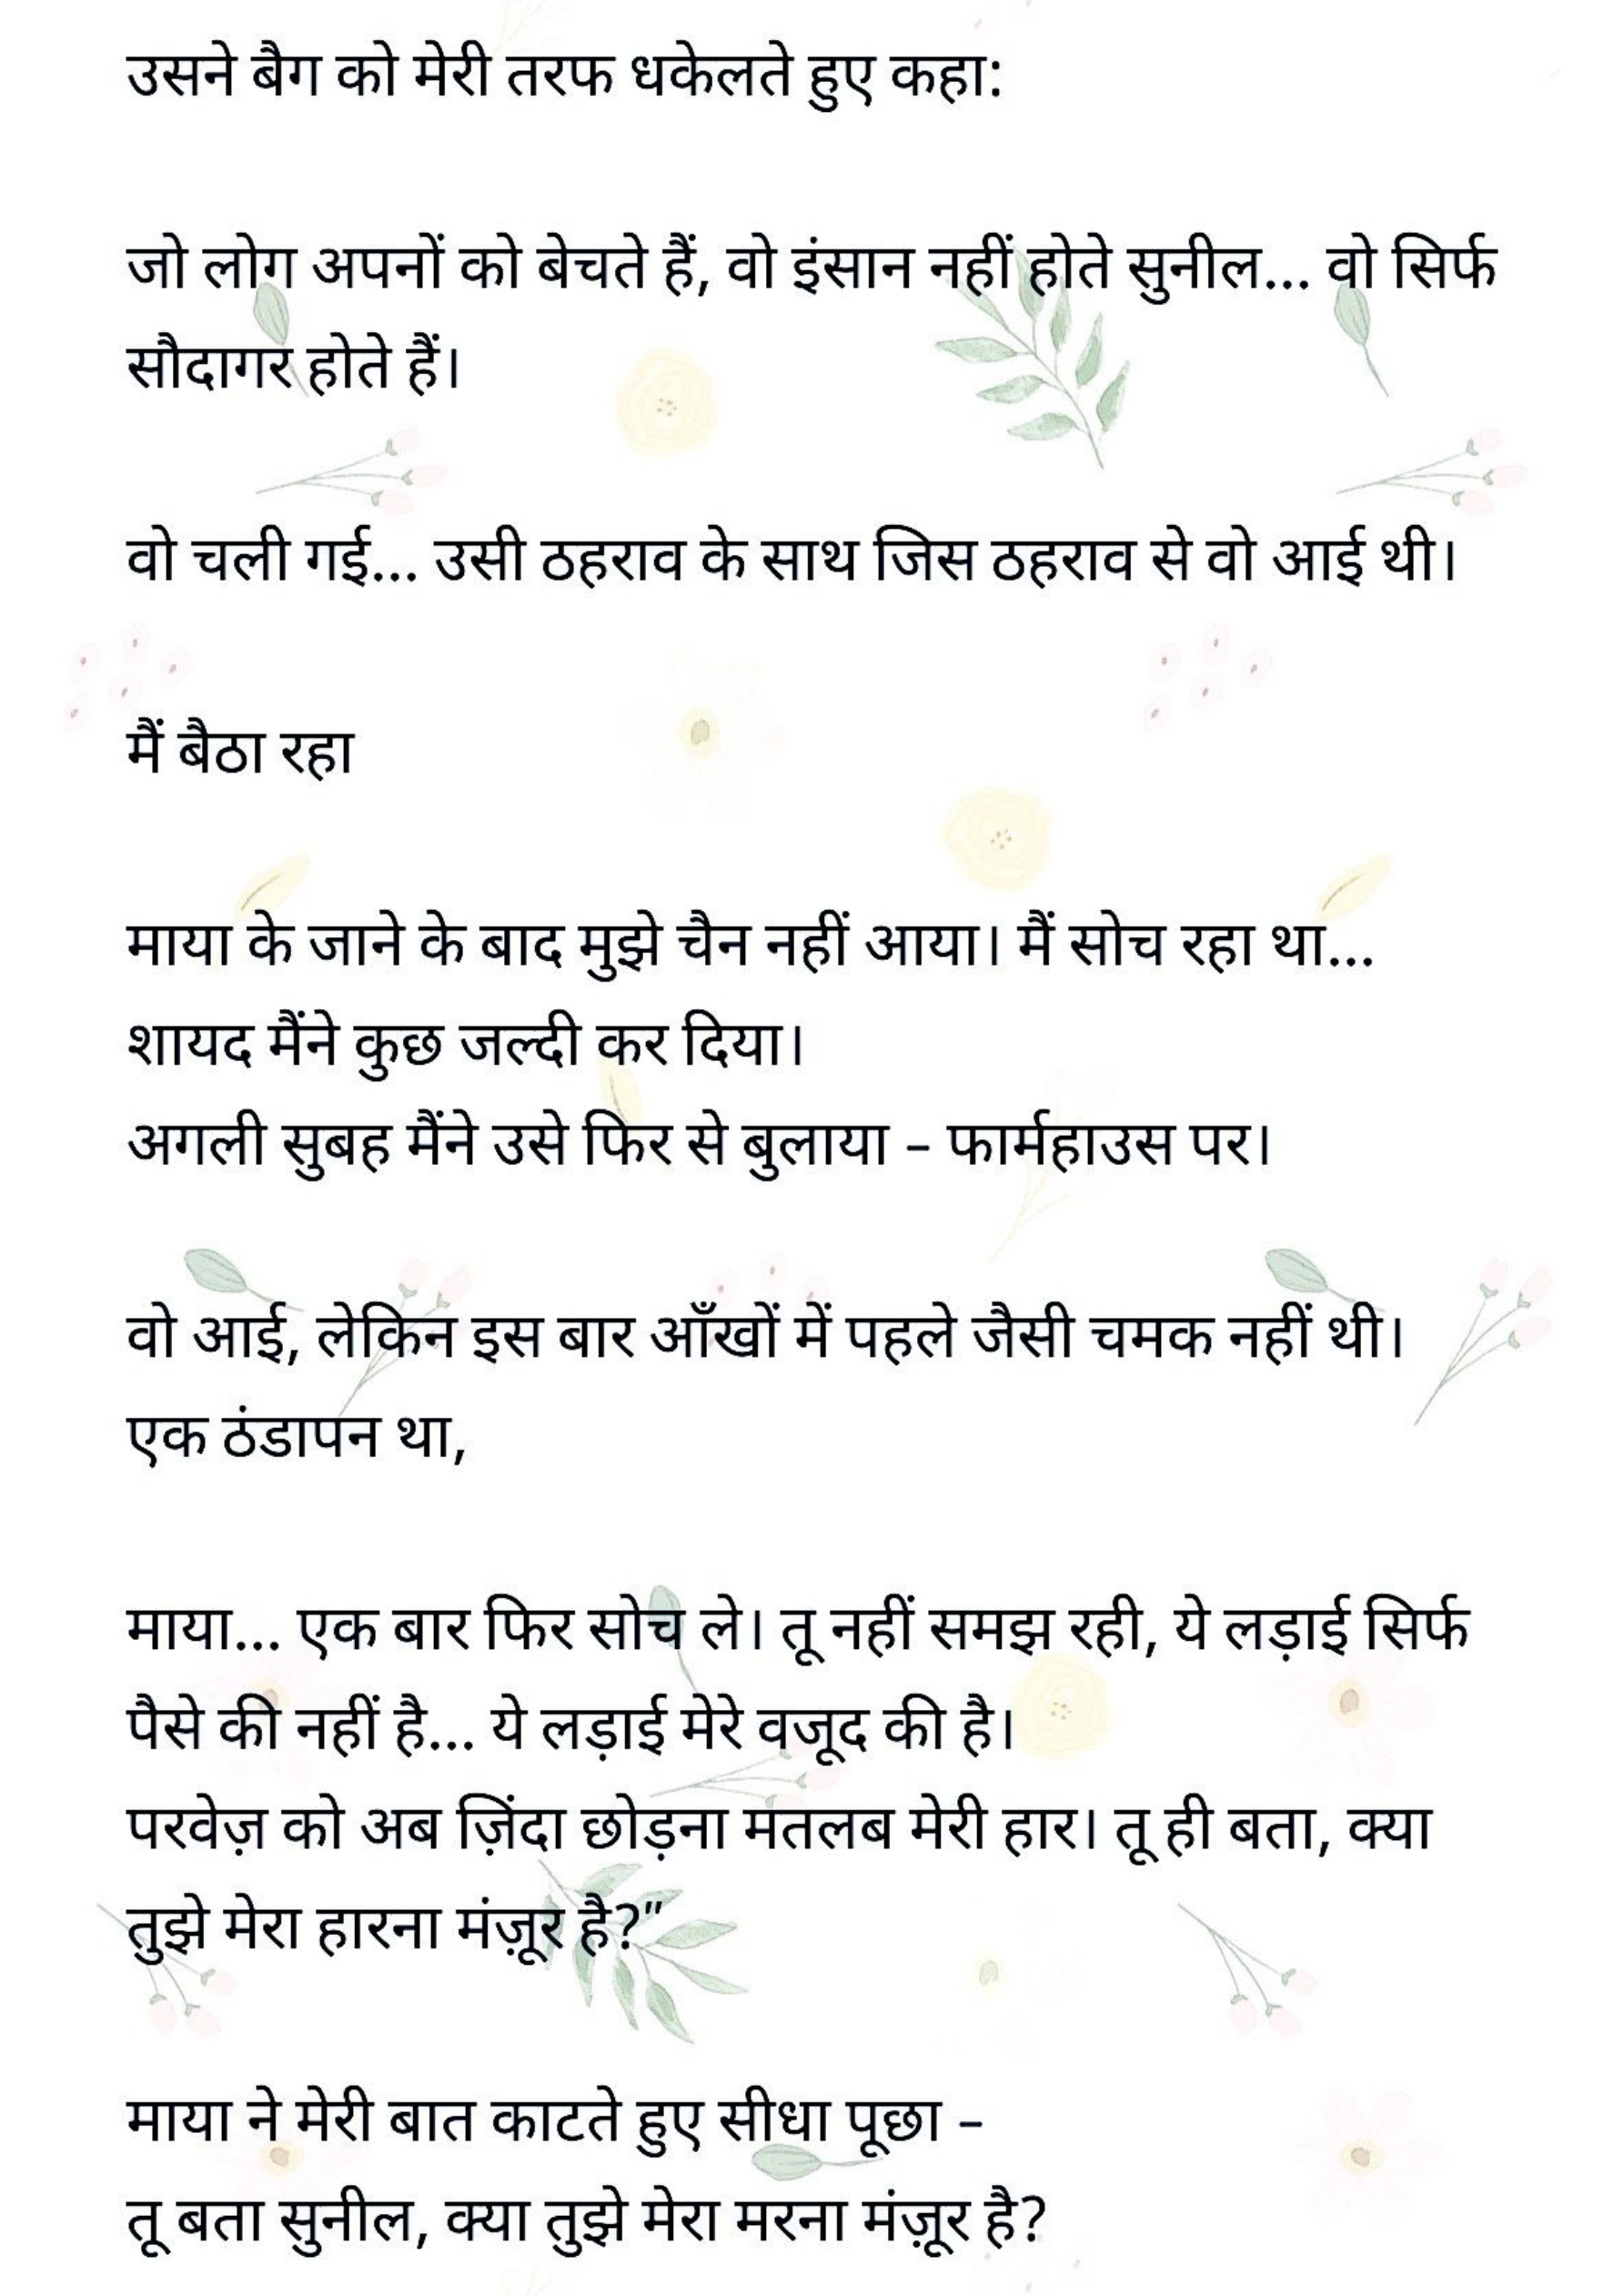 उसने बैग को मेरी तरफ धकेलते हुए कहा:
जो लोग अपनों को बेचते हैं, वो इंसान नहीं होते सुनील... वो सिर्फ
सौदागर होते हैं।
वो चली गई... उसी ठहराव के साथ जिस ठहराव से वो आई थी।
मैं बैठा रहा
माया के जाने के बाद मुझे चैन नहीं आया। मैं सोच रहा था...
शायद मैंने कुछ जल्दी कर दिया।
अगली सुबह मैंने उसे फिर से बुलाया – फार्महाउस पर।
वो आई, लेकिन इस बार आँखों में पहले जैसी चमक नहीं थी।
एक ठंडापन था,
माया... एक बार फिर सोच ले। तू नहीं समझ रही, ये लड़ाई सिर्फ
पैसे की नहीं है... ये लड़ाई मेरे वजूद की है।
परवेज़ को अब ज़िंदा छोड़ना मतलब मेरी हार। तू ही बता, क्या
तुझे मेरा हारना मंज़ूर है?”
माया ने मेरी बात काटते हुए सीधा पूछा –
तू बता सुनील, क्या तुझे मेरा मरना मंज़ूर है?